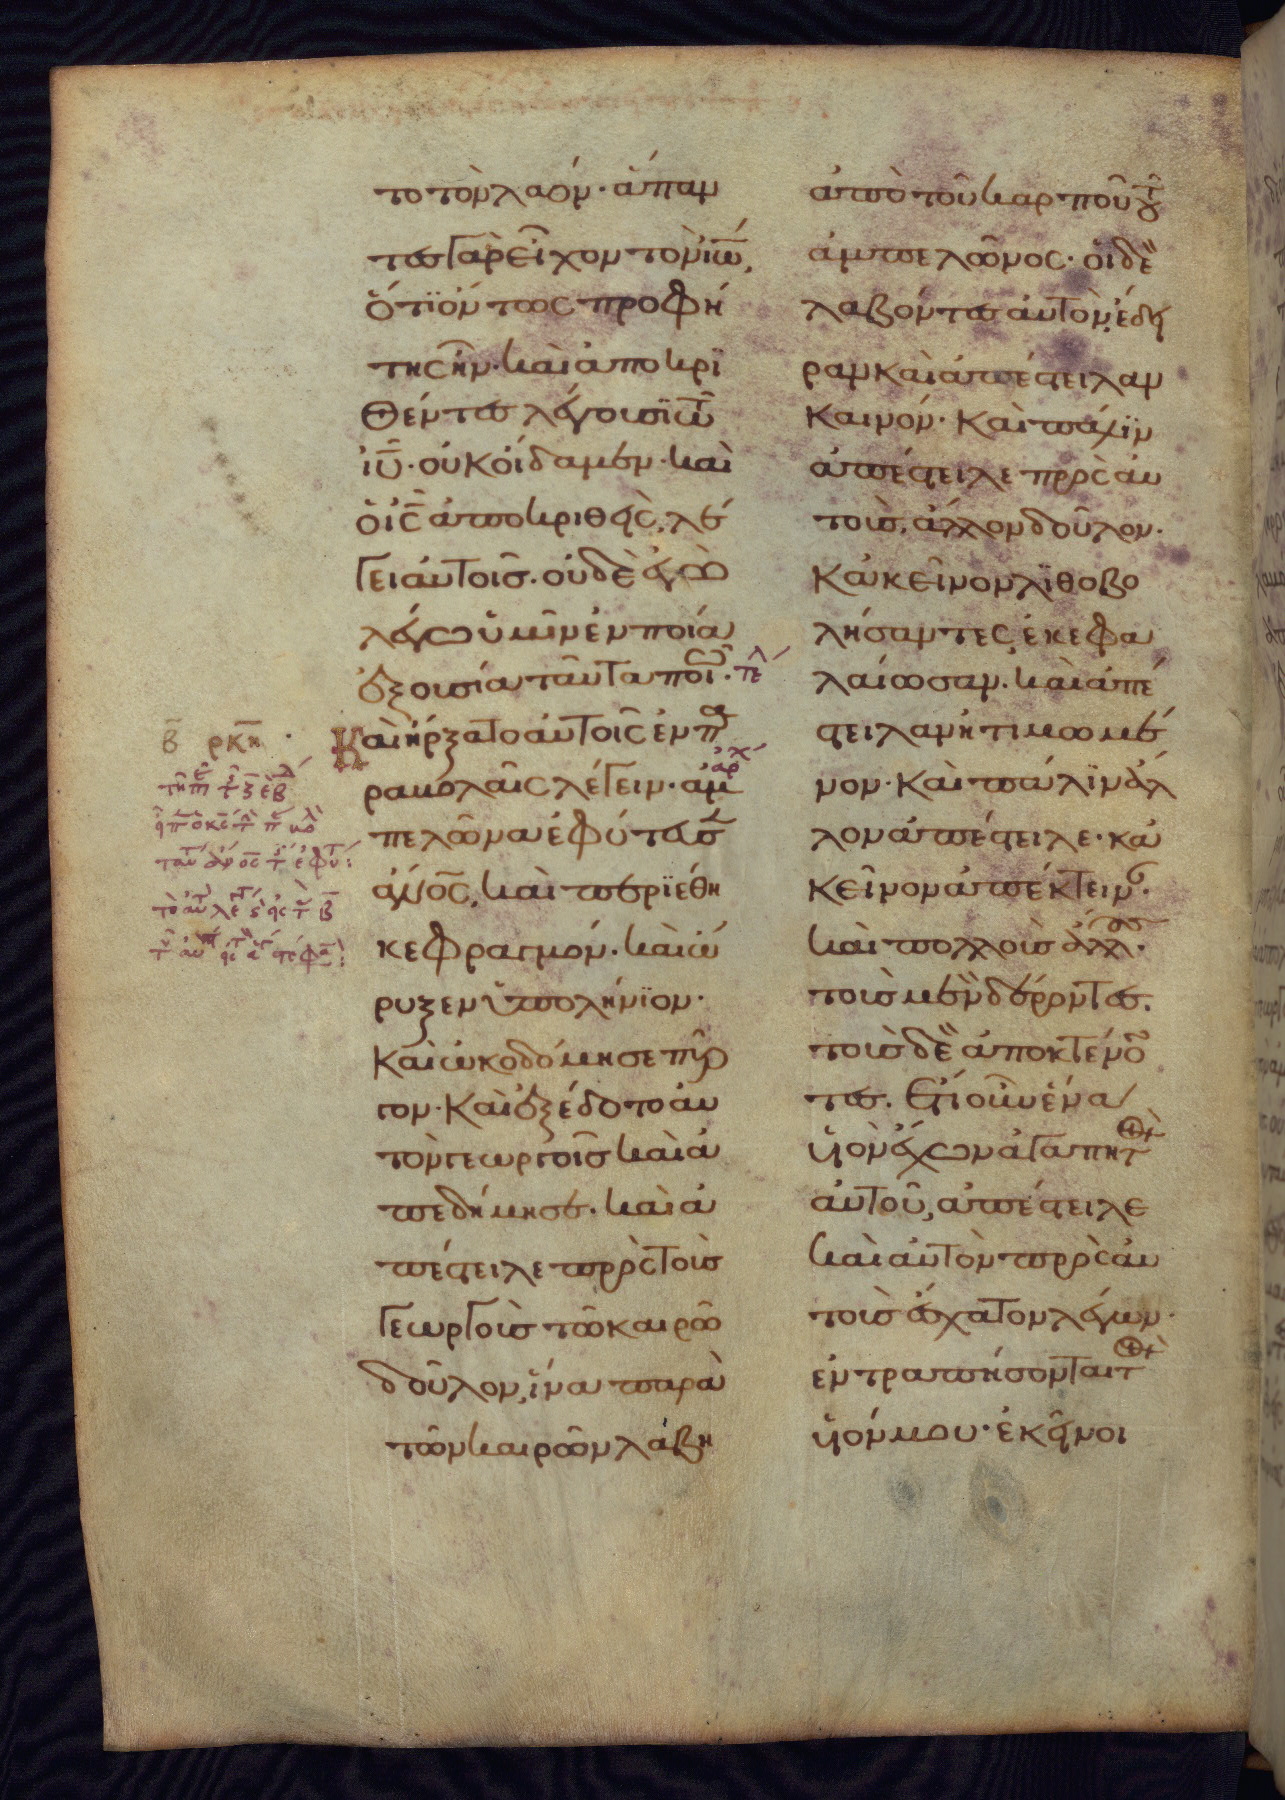 το τὸν λαόν· ἅπαν
τες γὰρ εἶχον τὸν ἰω̅,
ὅτϊ ὄντως προφή
της ἦν· καὶ ἀποκρι
θέντες λέγουσϊ τῶ
ἰυ̅· οὐκ οἴδαμεν· καὶ
ὁ ις̅ ἀποκριθεὶς, λέ
γει αὐτοῖς· οὐδὲ ἐγὼ
λέγω ὑμῖν ἐν ποία
ἐξουσία ταῦτα ποιῶ· τε
β̅ ρκη̅
Καὶ ἤρξατο αὐτοῖς ἐν πα
ραβολαῖς λέγειν· ἀμ
αρχ
πελῶνα ἐφύτευσεν
ἄνος̅, καὶ περϊέθη
κε φραγμόν· καὶ ὤ
ρυξεν ὑπολήνϊον·
καὶ ὠκοδόμησε πύρ
γον· καὶ ἐξέδοτο αὐ
τὸν γεωργοῖς καὶ ἀ
πεδήμησε· καὶ ἀ
πέστειλε πρὸς τοὺς
γεωργοὺς τῶ καιρῶ
δοῦλον, ἵνα παρὰ
τῶν καιρῶν λάβη
ἀπὸ τοῦ καρποῦ τοῦ
ἀμπελῶνος· οἱ δὲ
λαβόντες αὐτὸν, ἔδει
ραν καὶ ἀπέστειλαν
καινόν· καὶ πάλϊν
ἀπέστειλε πρὸς αὐ
τοὺς, ἄλλον δοῦλον·
κἀκεῖνον λϊθοβο
λήσαντες, ἐκεφα
λαίωσαν· καὶ ἀπέ
στειλαν ἠτιμωμέ
νον· καὶ πάλϊν ἄλ
λον ἀπέστειλε· κἀ
κεῖνον ἀπέκτειν·
καὶ πολλοὺς ἄλλους·
τοὺς μὲν δέροντες·
τοὺς δὲ ἀποκτένον
τες· Ἔτι οὖν ἕνα
υἱὸν ἔχων ἀγαπητ
αὐτοῦ, ἀπέστειλε
καὶ αὐτὸν πρὸς αὐ
τοὺς ἔσχατον λέγων·
ἐντραπήσονται τ
υἱόν μου· ἐκεῖνοι